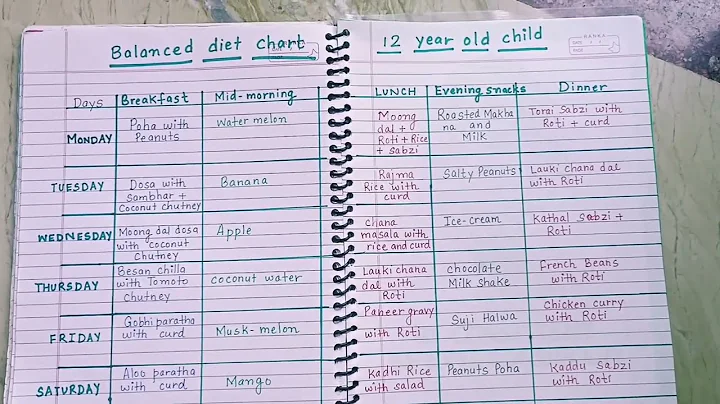 Balanced diet chart 12 year old child
Days Breakfast Mid-morning LUNCH Evening snacks Dinner
MONDAY
Poha with
Peanuts
Water melon
Moong
dal +
Roti + Rice
+ Sabzi
Roasted Makha
na and
Milk
Torai Sabzi with
Roti + curd
TUESDAY
Dosa with
Sambhar +
Coconut chutney
Banana
Rajma
Rice with
curd
Salty Peanuts
Lauki chana dal
with Roti
WEDNESDAY
Moong dal dosa
with coconut
Chutney
Apple
chana
masala with
rice and curd
Ice-cream
Kathal Sabzi +
Roti
THURSDAY
Besan chilla
with Tomoto
chutney
coconut water
Lauki chana
dal with
Roti
chocolate
Milk shake
French Beans
with Roti
FRIDAY
Gobhi paratha
with curd
Musk-melon
Paneer gravy
with Roti
Suji Halwa
Chicken curry
with Roti
SATURDAY
Aloo paratha
with curd
Mango
Kadhi Rice
with salad
Peanuts Poha
Kaddu Sabzi
with Roti